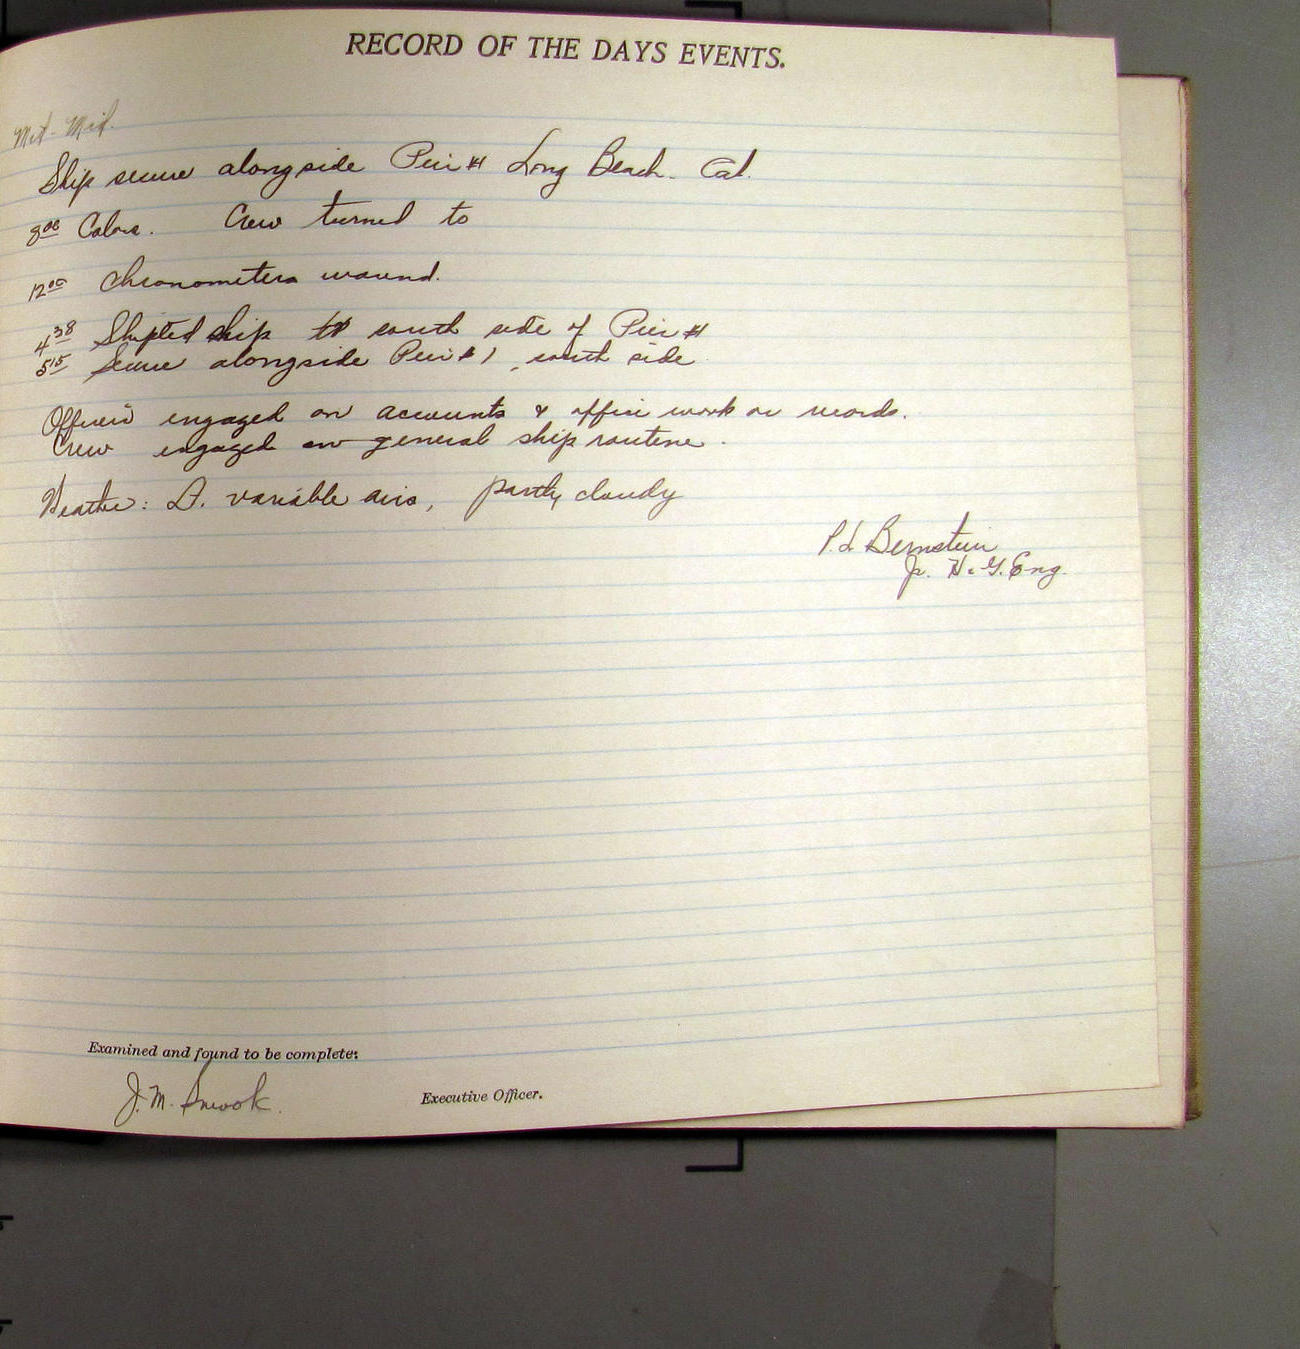 RECORD OF THE DAYS EVENTS.
Mid - Mid.
Ship secure alongside Pier #1 Long Beach. Cal.
8 00 Colors. Crew turned to
12 00 Chronometers wound.
4 38 Shifted ship to south side of Pier #1
5 15 Secure alongside Pier #1, south side
Officers engaged on accounts & office work on records.
Crew engaged on general ship routine.
Weather: Lt. variable airs, partly cloudy
P.L. Bernstein
Jr. H. & G. Eng.
Examined and found to be complete:
J. M. Smook.
Executive Officer.